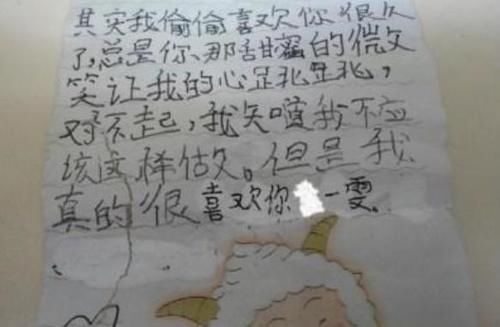 其实我偷偷喜欢你很久
了,总是你那甜蜜的微
笑让我的心跳,
对不起,我知道我不应
该这样做。但是我
真的很喜欢你一雯。